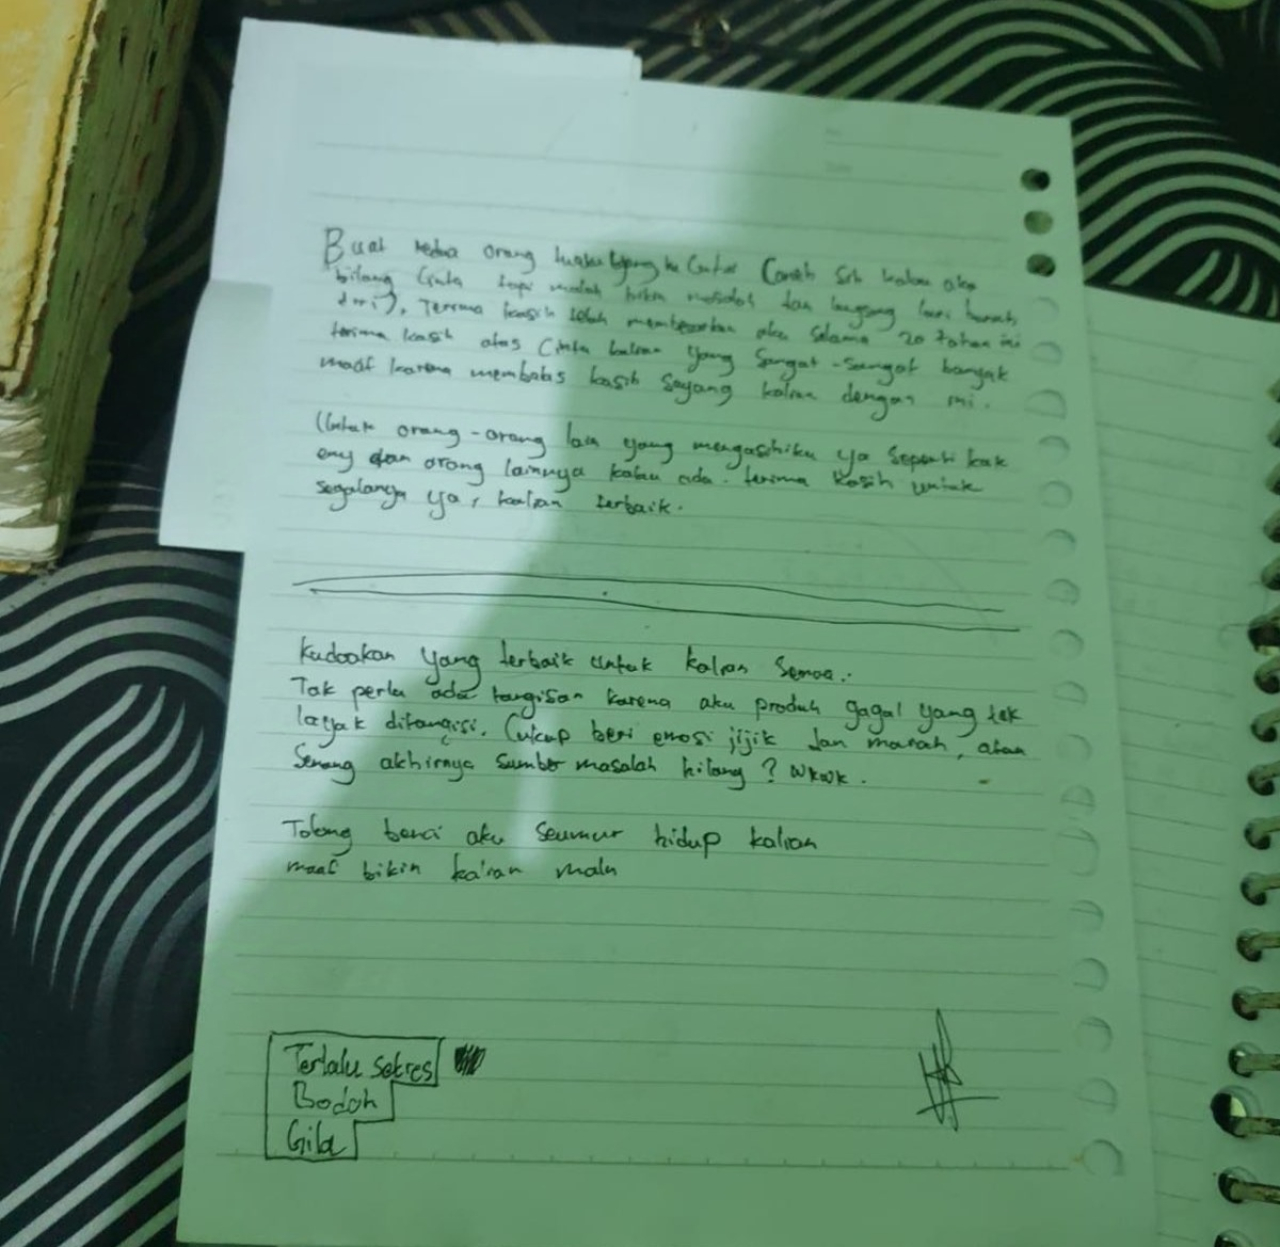 Buat kedua orang tuaku yang ku cintai (aneh sih kalau aku
bilang cinta tapi malah bikin masalah dan langsung lari bunuh
diri), Terima kasih telah membesarkan aku selama 20 tahun ini
terima kasih atas cinta kalian yang sangat-sangat banyak
maaf karena membalas kasih sayang kalian dengan ini.
Untuk orang-orang lain yang mengasihiku ya seperti kak
emy dan orang lainnya kalau ada. terima kasih untuk
segalanya ya, kalian terbaik.
Kudoakan yang terbaik untuk kalian semua.
Tak perlu ada tangisan karena aku produk gagal yang tak
layak ditangisi. Cukup beri emosi jijik dan marah, atau
Senang akhirnya sumber masalah hilang? wkwk.
Tolong benci aku seumur hidup kalian
maaf bikin kalian malu
Terlalu setres
Bodoh
Gila